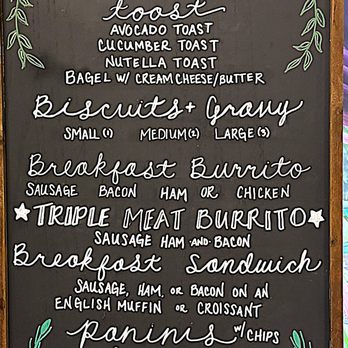 toast
AVOCADO TOAST
CUCUMBER TOAST
NUTELLA TOAST
BAGEL W/ CREAM CHEESE/BUTTER
Biscuits + Gravy
SMALL (1) MEDIUM (2) LARGE (3)
Breakfast Burrito
SAUSAGE BACON HAM OR CHICKEN
TRIPLE MEAT BURRITO
SAUSAGE HAM AND BACON
Breakfast Sandwich
SAUSAGE, HAM, OR BACON ON AN
ENGLISH MUFFIN OR CROISSANT
paninis W/ CHIPS